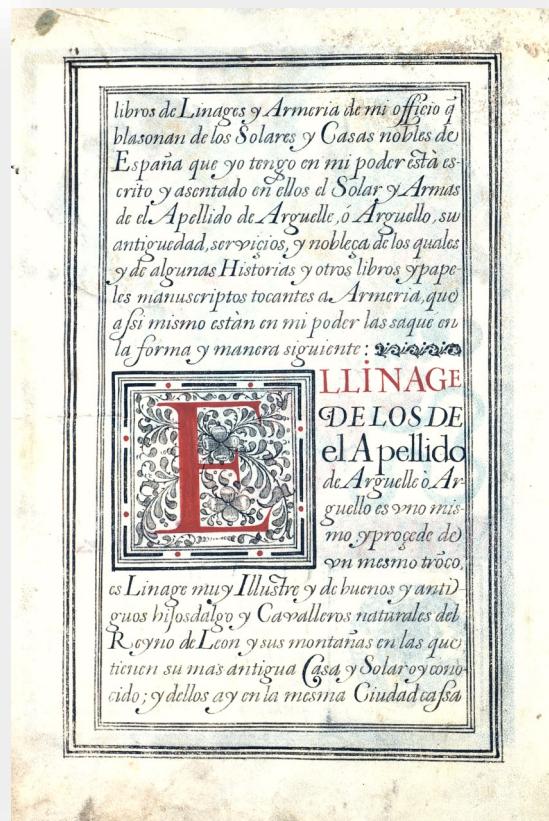 libros de Linages y Armeria de mi officio q̃
blasonan de los Solares y Casas nobles de
España que yo tengo en mi poder està es-
crito y asentado en ellos el Solar y Armas
de el Apellido de Arguelle, ò Arguello, su
antiguedad, serviçios, y nobleça de los quales
y de algunas Historias y otros libros y pape-
les manuscriptos tocantes a Armeria, que
assi mismo estàn en mi poder las saquè en
la forma y manera siguiente:
EL LINAGE
DE LOS DE
el Apellido
de Arguelle ò Ar-
guello es vno mis-
mo y proçede de
vn mesmo trõco,
es Linage muy Illustre y de buenos y anti-
guos hijosdalgo y Cavalleros naturales del
Reyno de Leon y sus montañas en las que
tienen su mas antigua Casa y Solar oy cono-
cido; y dellos ay en la mesma Ciudad cassa